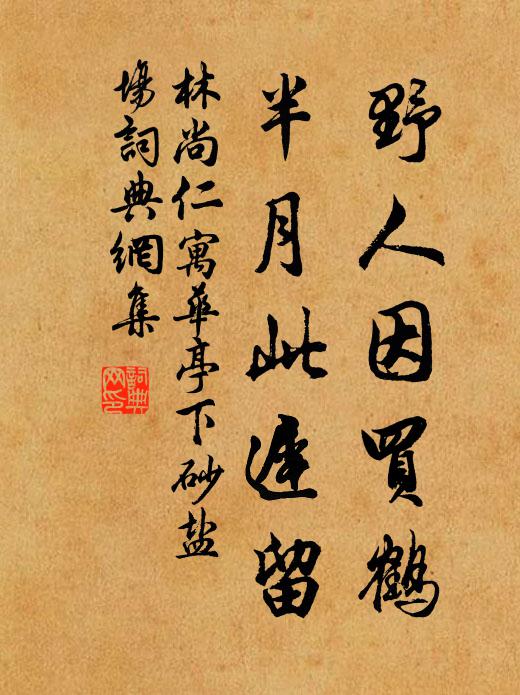 野人因買鶴
半月此遲留
林尚仁寓華亭下砂盐
場詞典網集
詞典网印